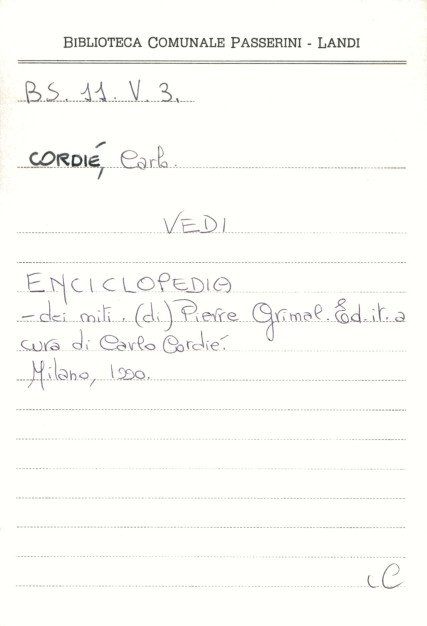 BIBLIOTECA COMUNALE PASSERINI - LANDI
BS. 11. V. 3.
CORDIÉ, Carlo.
VEDI
ENCICLOPEDIA
- dei miti. (di) Pierre Grimal. Ed. it. a
cura di Carlo Cordié.
Milano, 1990.